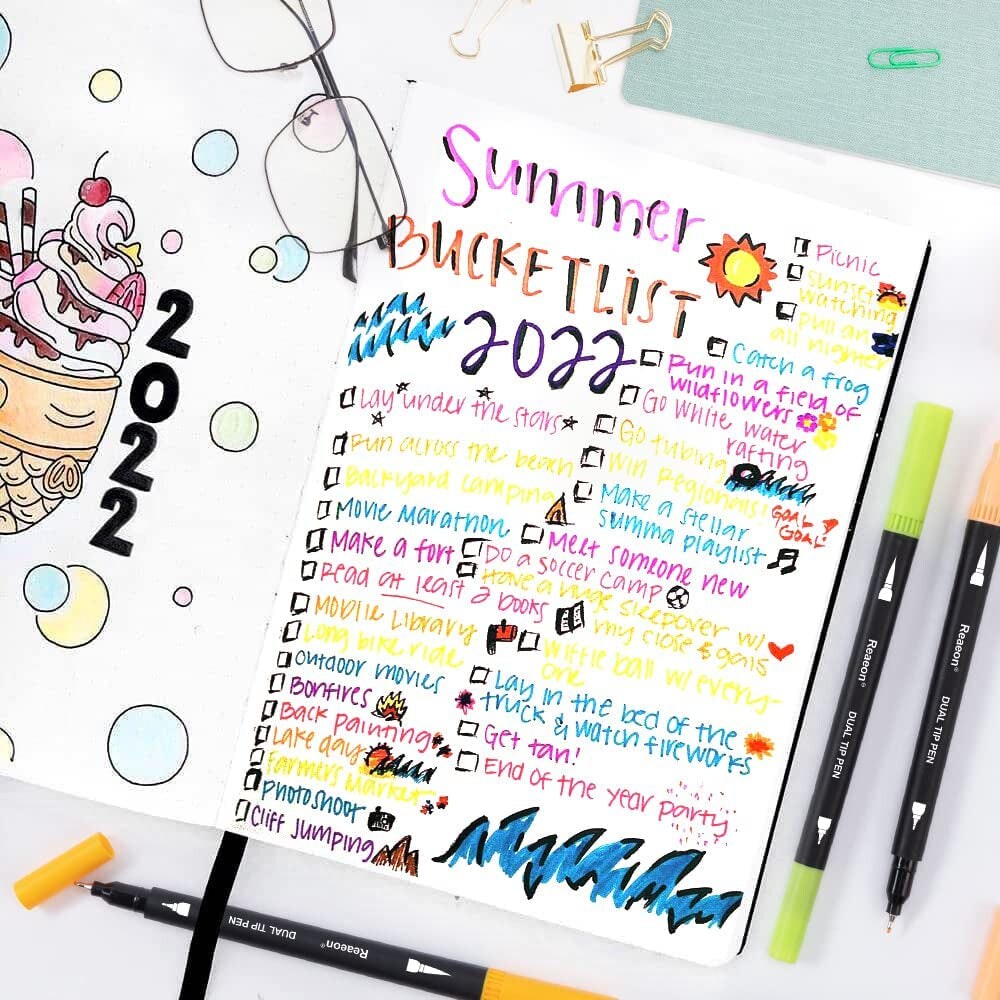 2022
Summer
BUCKETLIST
2022
Lay under the stars
Run across the beach
Backyard camping
Movie Marathon
Make a fort
Read at least 2 books
Moblie Library
Long bike ride
Outdoor movies
Bonfires
Back painting
Lake day
Farmers Market
Photoshoot
Cliff Jumping
Picnic
Sunset
watching
Pull an
all nighter
Catch a frog
Run in a field of
wildflowers
Go white water
rafting
Go tubing
Win Regionals!
GOAL!
GOAL!
Make a stellar
summa playlist
Meet someone new
Do a soccer camp
Have a huge sleepover w/
my close 5 gals
Wiffle ball w/ every-
one
Lay in the bed of the
truck & watch fireworks
Get tan!
End of the year party
Reaeon® DUAL TIP PEN
Reaeon® DUAL TIP PEN
Reaeon® DUAL TIP PEN